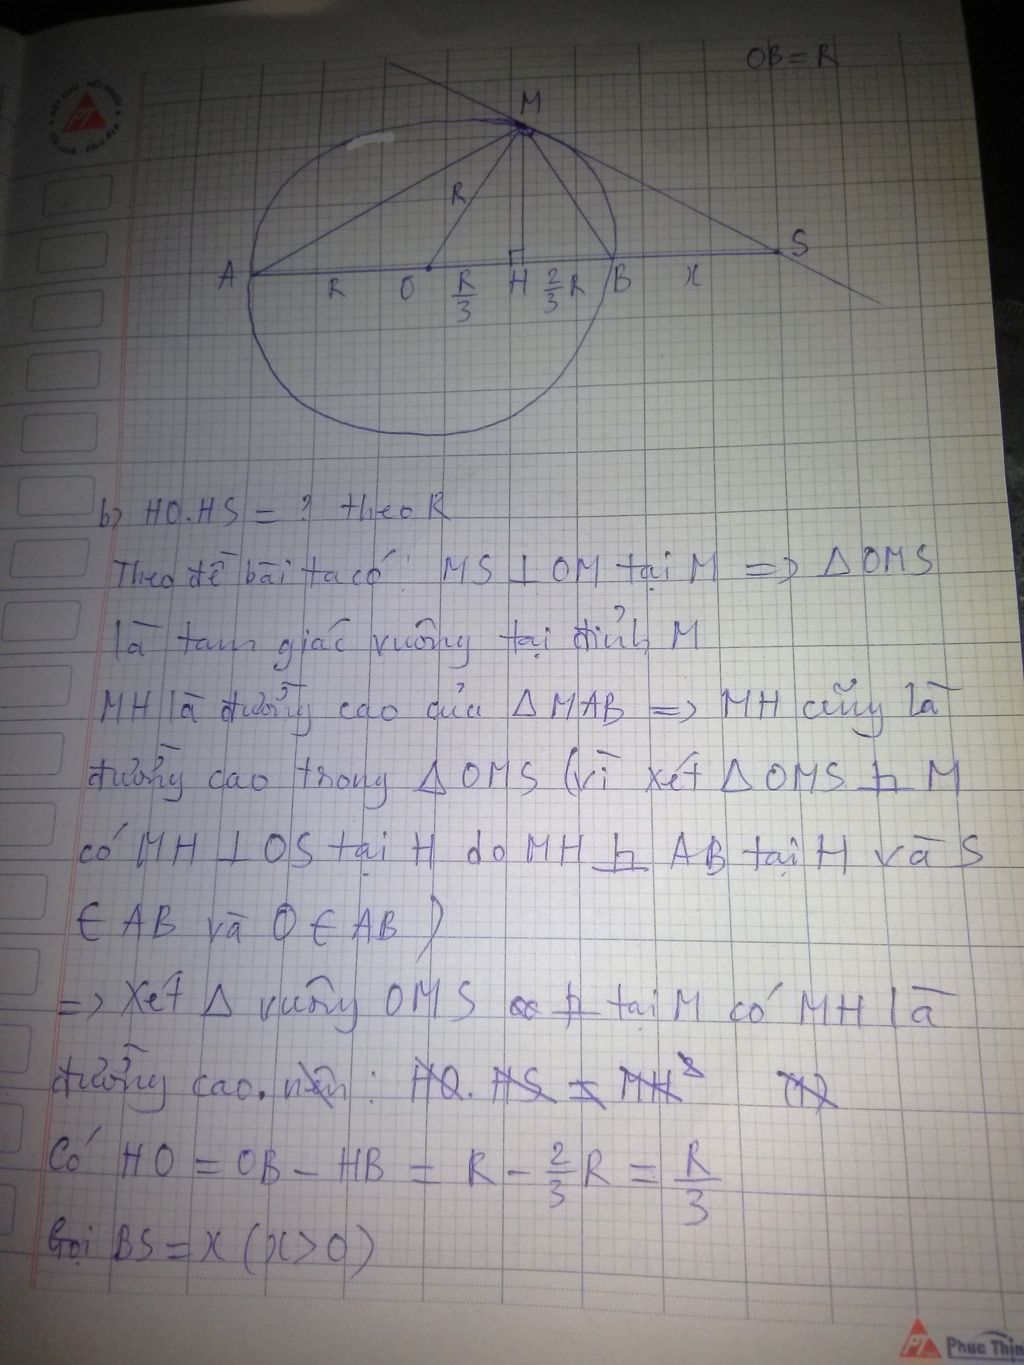 OB = R
M
R
A R O R/3 H 2/3 R B x S
b) HO.HS = ? theo R
Theo đề bài ta có: MS ⊥ OM tại M => Δ OMS
là tam giác vuông tại đỉnh M
MH là đường cao của Δ MAB => MH cũng là
đường cao trong Δ OMS (vì xét Δ OMS ⊥ M
có MH ⊥ OS tại H do MH ⊥ AB tại H và S
∈ AB và O ∈ AB)
=> Xét Δ vuông OMS tại M có MH là
đường cao. nên: HO. HS = MH²
Có HO = OB - HB = R - 2/3 R = R/3
Gọi BS = x (x > 0)
PT